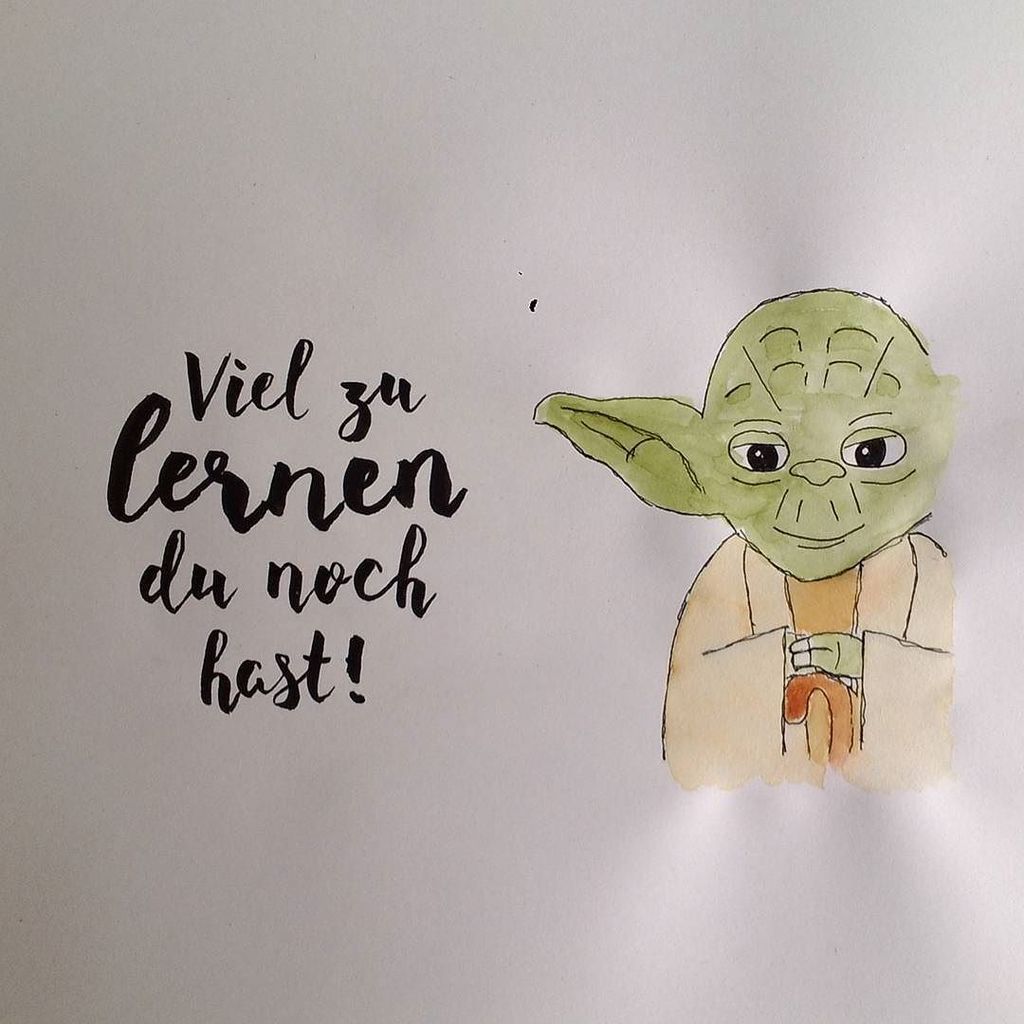 Viel zu
lernen
du noch
hast!